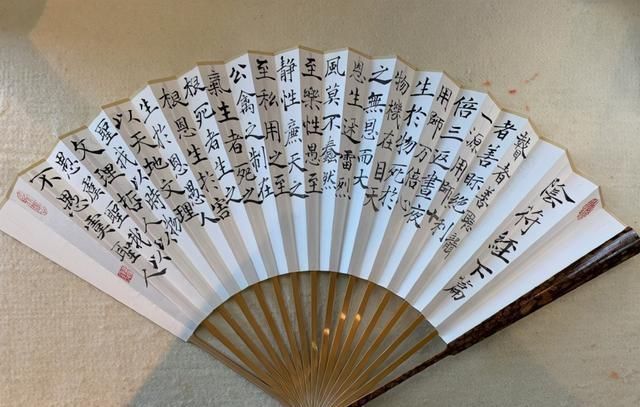 陰符經下篇
瞽者善聽聾
者善眎絕利
一源用師十
倍三返晝夜
用師萬倍心
生於物死於
物機在目天
之無恩而大
恩生迅雷烈
風莫不蠢然
至樂性愚至
靜性廉天之
至私用之至
公禽之制在
氣生者死之
根死者生之
根恩生於害
生於恩愚人
以天地文理
聖我以時物
文理人以
愚虞聖我以
不愚虞聖